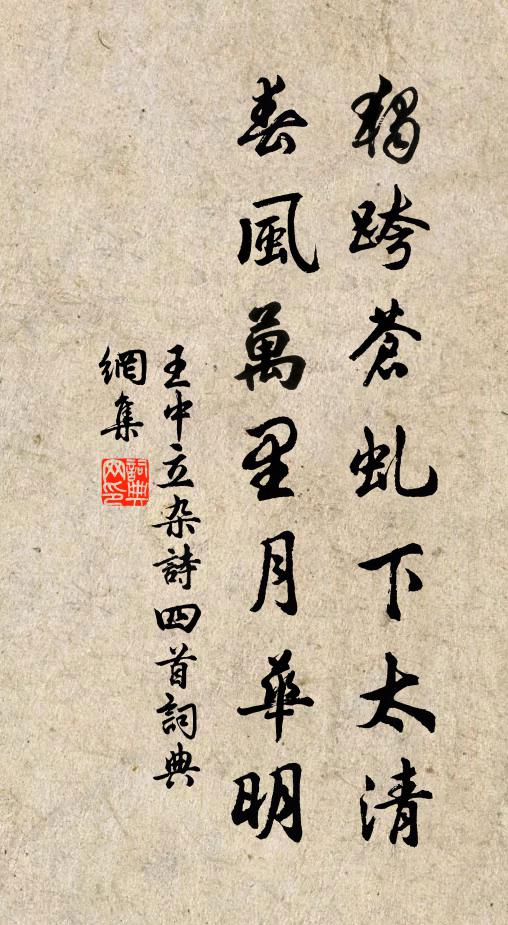 獨跨蒼虬下太清
春風萬里月華明
王中立杂詩四首詞典
網集
詞典网印